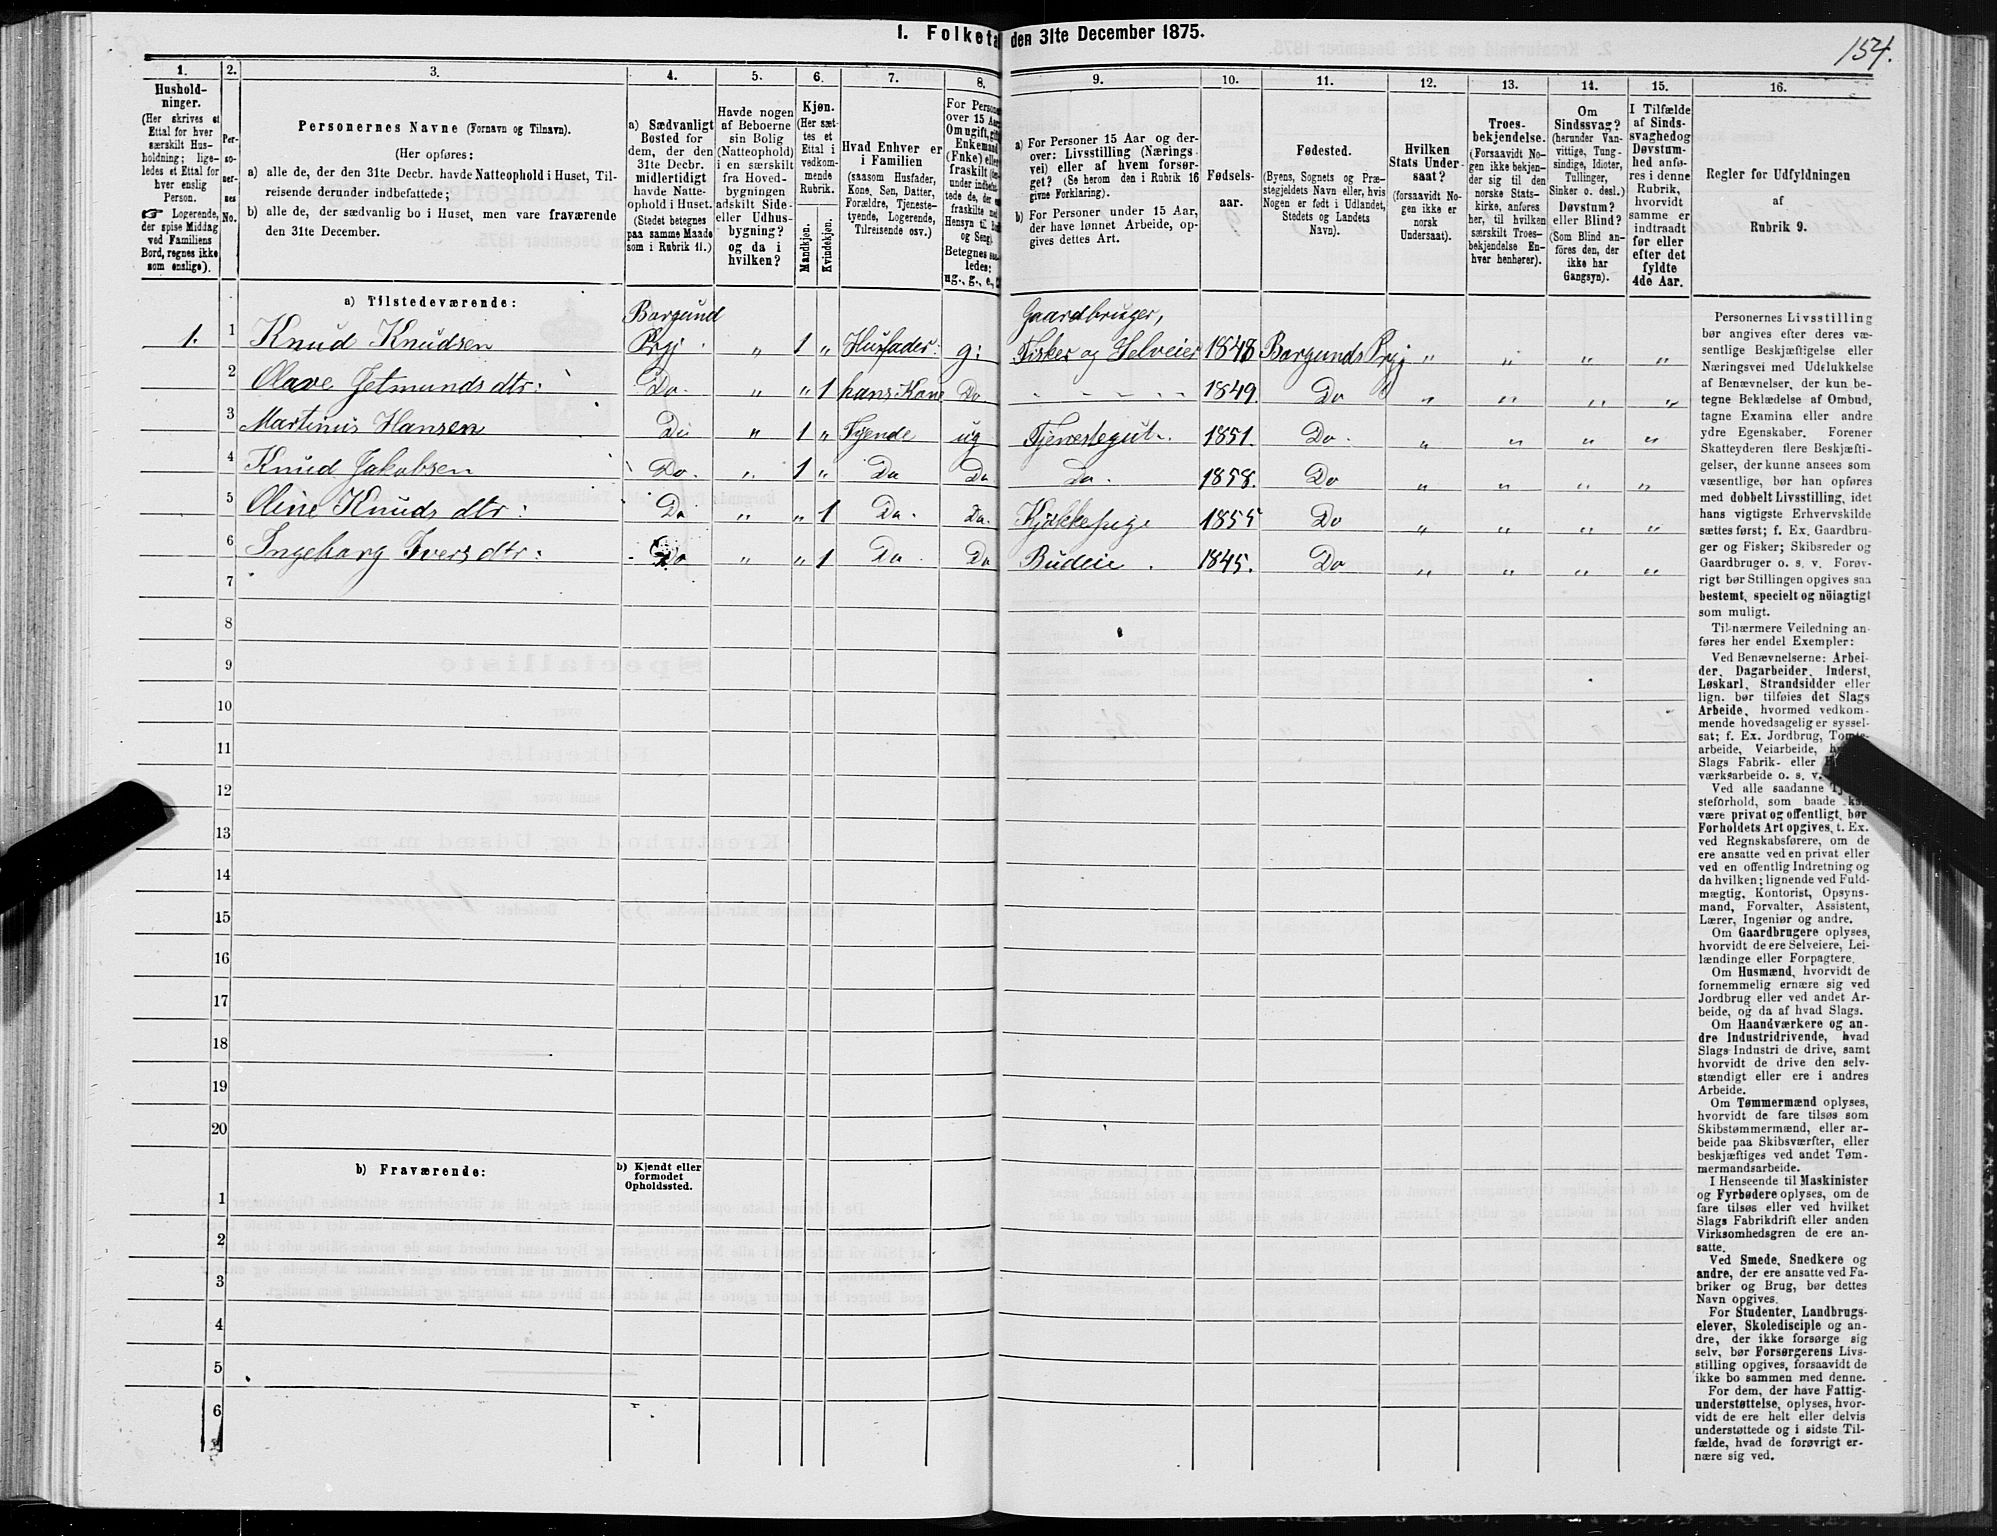 1. Folketa den 31te December 1875.
154.
1. 2. 3. 4. 5. 6. 7. 8. 9. 10. 11. 12. 13. 14. 15. 16.
Hushold-
ninger.
(Her skrives et
Ettal for hver
særskilt Hus-
holdning; lige-
ledes et Ettal for
hver enslig
Person.
☞ Logerende,
der spise Middag
ved Familiens
Bord, regnes ikke
som enslige).
Per-
so-
ner-
nes
No.
Personernes Navne (Fornavn og Tilnavn).
(Her opføres:
a) alle de, der den 31te Decbr. havde Natteophold i Huset, Til-
reisende derunder indbefattede;
b) alle de, der sædvanlig bo i Huset, men vare fraværende
den 31te December.
a) Sædvanligt
Bosted for
dem, der den
31te Decbr.
midlertidigt
havde Natte-
ophold i Huset.
(Stedet betegnes
paa samme Maade
som i Rubrik 11.)
Havde nogen
af Beboerne
sin Bolig
(Natteophold)
i en særskilt
fra Hoved-
bygningen
adskilt Side-
eller Udhus-
bygning?
og da i
hvilken?
Kjøn.
(Her sæt-
tes et
Ettal i
vedkom-
mende
Rubrik.
Mandkjøn.
Kvindekjøn.
Hvad Enhver er
i Familien
(saasom Husfader,
Kone, Søn, Datter,
Forældre, Tjeneste-
tyende, Logerende,
Tilreisende osv.)
For Persone
over 15 Aar
Om ugift, gift
Enkemand
(Fnke) eller
fraskilt
under indbefat-
tede de, der ere
fraskilte med
Hensyn til Bord
og Seng).
Betegnes saa-
ledes:
ug., g., e.,
a) For Personer 15 Aar og der-
over: Livsstilling (Nærings-
vei) eller af hvem forsør-
get? (Se herom den i Rubrik 16
givne Forklaring).
b) For Personer under 15 Aar,
der have lønnet Arbeide, op-
gives dettes Art.
Fødsels-
aar.
Fødested.
(Byens, Sognets og Præ-
stegjeldets Navn eller, hvis
Nogen er født i Udlandet,
Stedets og Landets
Navn).
Hvilken
Stats Under-
saat?
(forsaavidt No-
gen ikke er
norsk
Undersaat).
Troes-
bekjendelse.
(Forsaavidt No-
gen ikke bekjen-
der sig til den
norske Stats-
kirke, anføres
her, til hvilken
særskilt Troes-
bekjendelse En-
hver henhører).
Om
Sindssvag?
(herunder Van-
vittige, Tung-
sindige, Idioter,
Tullinger,
Sinker o. desl.)
Døvstum?
eller Blind?
(Som Blind an-
føres den, der
ikke har
Gangsyn).
I Tilfælde
af Sinds-
svaghedog
Døvstum-
hed anfø-
res i denne
Rubrik,
hvorvidt
samme er
indtraadt
før eller
efter det
fyldte
4de Aar.
Regler for Udfyldningen
af
Rubrik 9.
a) Tilstedeværende:
1. 1 Knud Knudsen Borgund Prgj. „ 1 „ Husfader: g: Gaardbruger, Fisker og Selveier 1848 Borgunds Prgj „ „ „ „
2 Olave Jetmundsdtr: Do. „ „ 1 hans Kone Do. - - - - - 1849. Do „ „ „ „
3 Martinus Hansen Do „ 1 „ Tyende ug Tjenestegut. 1851. Do. „ „ „ „
4 Knud Jakobsen Do. „ 1 „ Do Do. do. 1858. Do „ „ „ „
5 Oline Knudsdtr: Do „ „ 1 Do. Do. Kjøkkepige 1855 Do „ „ „ „
6 Ingeborg Iversdtr: Do „ „ 1 Do Do Budeie. 1845. Do „ „ „ „
7
8
9
10
11
12
13
14
15
16
17
18
19
20
b) Fraværende:
b) Kjendt eller
formodet
Opholdssted.
1
2
3
4
5
6
Personernes Livsstilling
bør angives efter deres væ-
sentlige Beskjæftigelse eller
Næringsvei med Udelukkelse
af Benævnelser, der kun be-
tegne Beklædelse af Ombud,
tagne Examina eller andre
ydre Egenskaber. Forener
Skatteyderen flere Beskjæfti-
gelser, der kunne ansees som
væsentlige, bør han opføres
med dobbelt Livsstilling, idet
hans vigtigste Erhvervskilde
sættes først; f. Ex. Gaardbru-
ger og Fisker; Skibsreder og
Gaardbruger o. s. v. Forøv-
rigt bør Stillingen opgives saa
bestemt, specielt og nöiagtigt
som muligt.
Til nærmere Veiledning an-
føres her endel Exempler:
Ved Benævnelserne: Arbei-
der, Dagarbeider, Inderst,
Løskarl, Strandsidder eller
lign. bør tilføies det Slags
Arbeide, hvormed vedkom-
mende hovedsagelig er syssel-
sat; f. Ex. Jordbrug, Tomte-
arbeide, Veiarbeide,
Slags Fabrik- eller
værksarbeide o. s. v.
Ved alle saadanne Tje-
steforhold, som baade
være privat og offentligt, bør
Forholdets Art opgives, t. Ex.
ved Regnskabsførere, om de
ere ansatte ved en privat eller
ved en offentlig Indretning og
da hvilken; lignende ved Fuld-
mægtig, Kontorist, Opsyns-
mand, Forvalter, Assistent,
Lærer, Ingeniør og andre.
Om Gaardbrugere oplyses,
hvorvidt de ere Selveiere, Lei-
lændinge eller Forpagtere.
Om Husmænd, hvorvidt de
fornemmelig ernære sig ved
Jordbrug eller ved andet Ar-
beide, og da af hvad Slags.
Om Haandværkere og an-
dre Industridrivende, hvad
Slags Industri de drive, samt
hvorvidt de drive den selv-
stændigt eller ere i andres
Arbeide.
Om Tømmermænd oplyses,
hvorvidt de fare tilsøs som
Skibstømmermænd, eller ar-
beide paa Skibsværfter, eller
beskjæftiges ved andet Tøm-
mermandsarbeide.
I Henseende til Maskinister
og Fyrbødere oplyses, om de
fare tilsøs eller ved hvilket
Slags Fabrikdrift eller anden
Virksomhedsgren de ere an-
satte.
Ved Smede, Snedkere og
andre, der ere ansatte ved Fa-
briker og Brug, bør dettes
Navn opgives.
For Studenter, Landbrugs-
elever, Skoledisciple og an-
dre, der ikke forsørge sig
selv, bør Forsørgerens Livs-
stilling opgives, forsaavidt de
ikke bo sammen med denne.
For dem, der have Fattig-
understøttelse, oplyses, hvor-
vidt de ere helt eller delvis
understøttede og i sidste Til-
fælde, hvad de forøvrigt er-
nære sig ved.